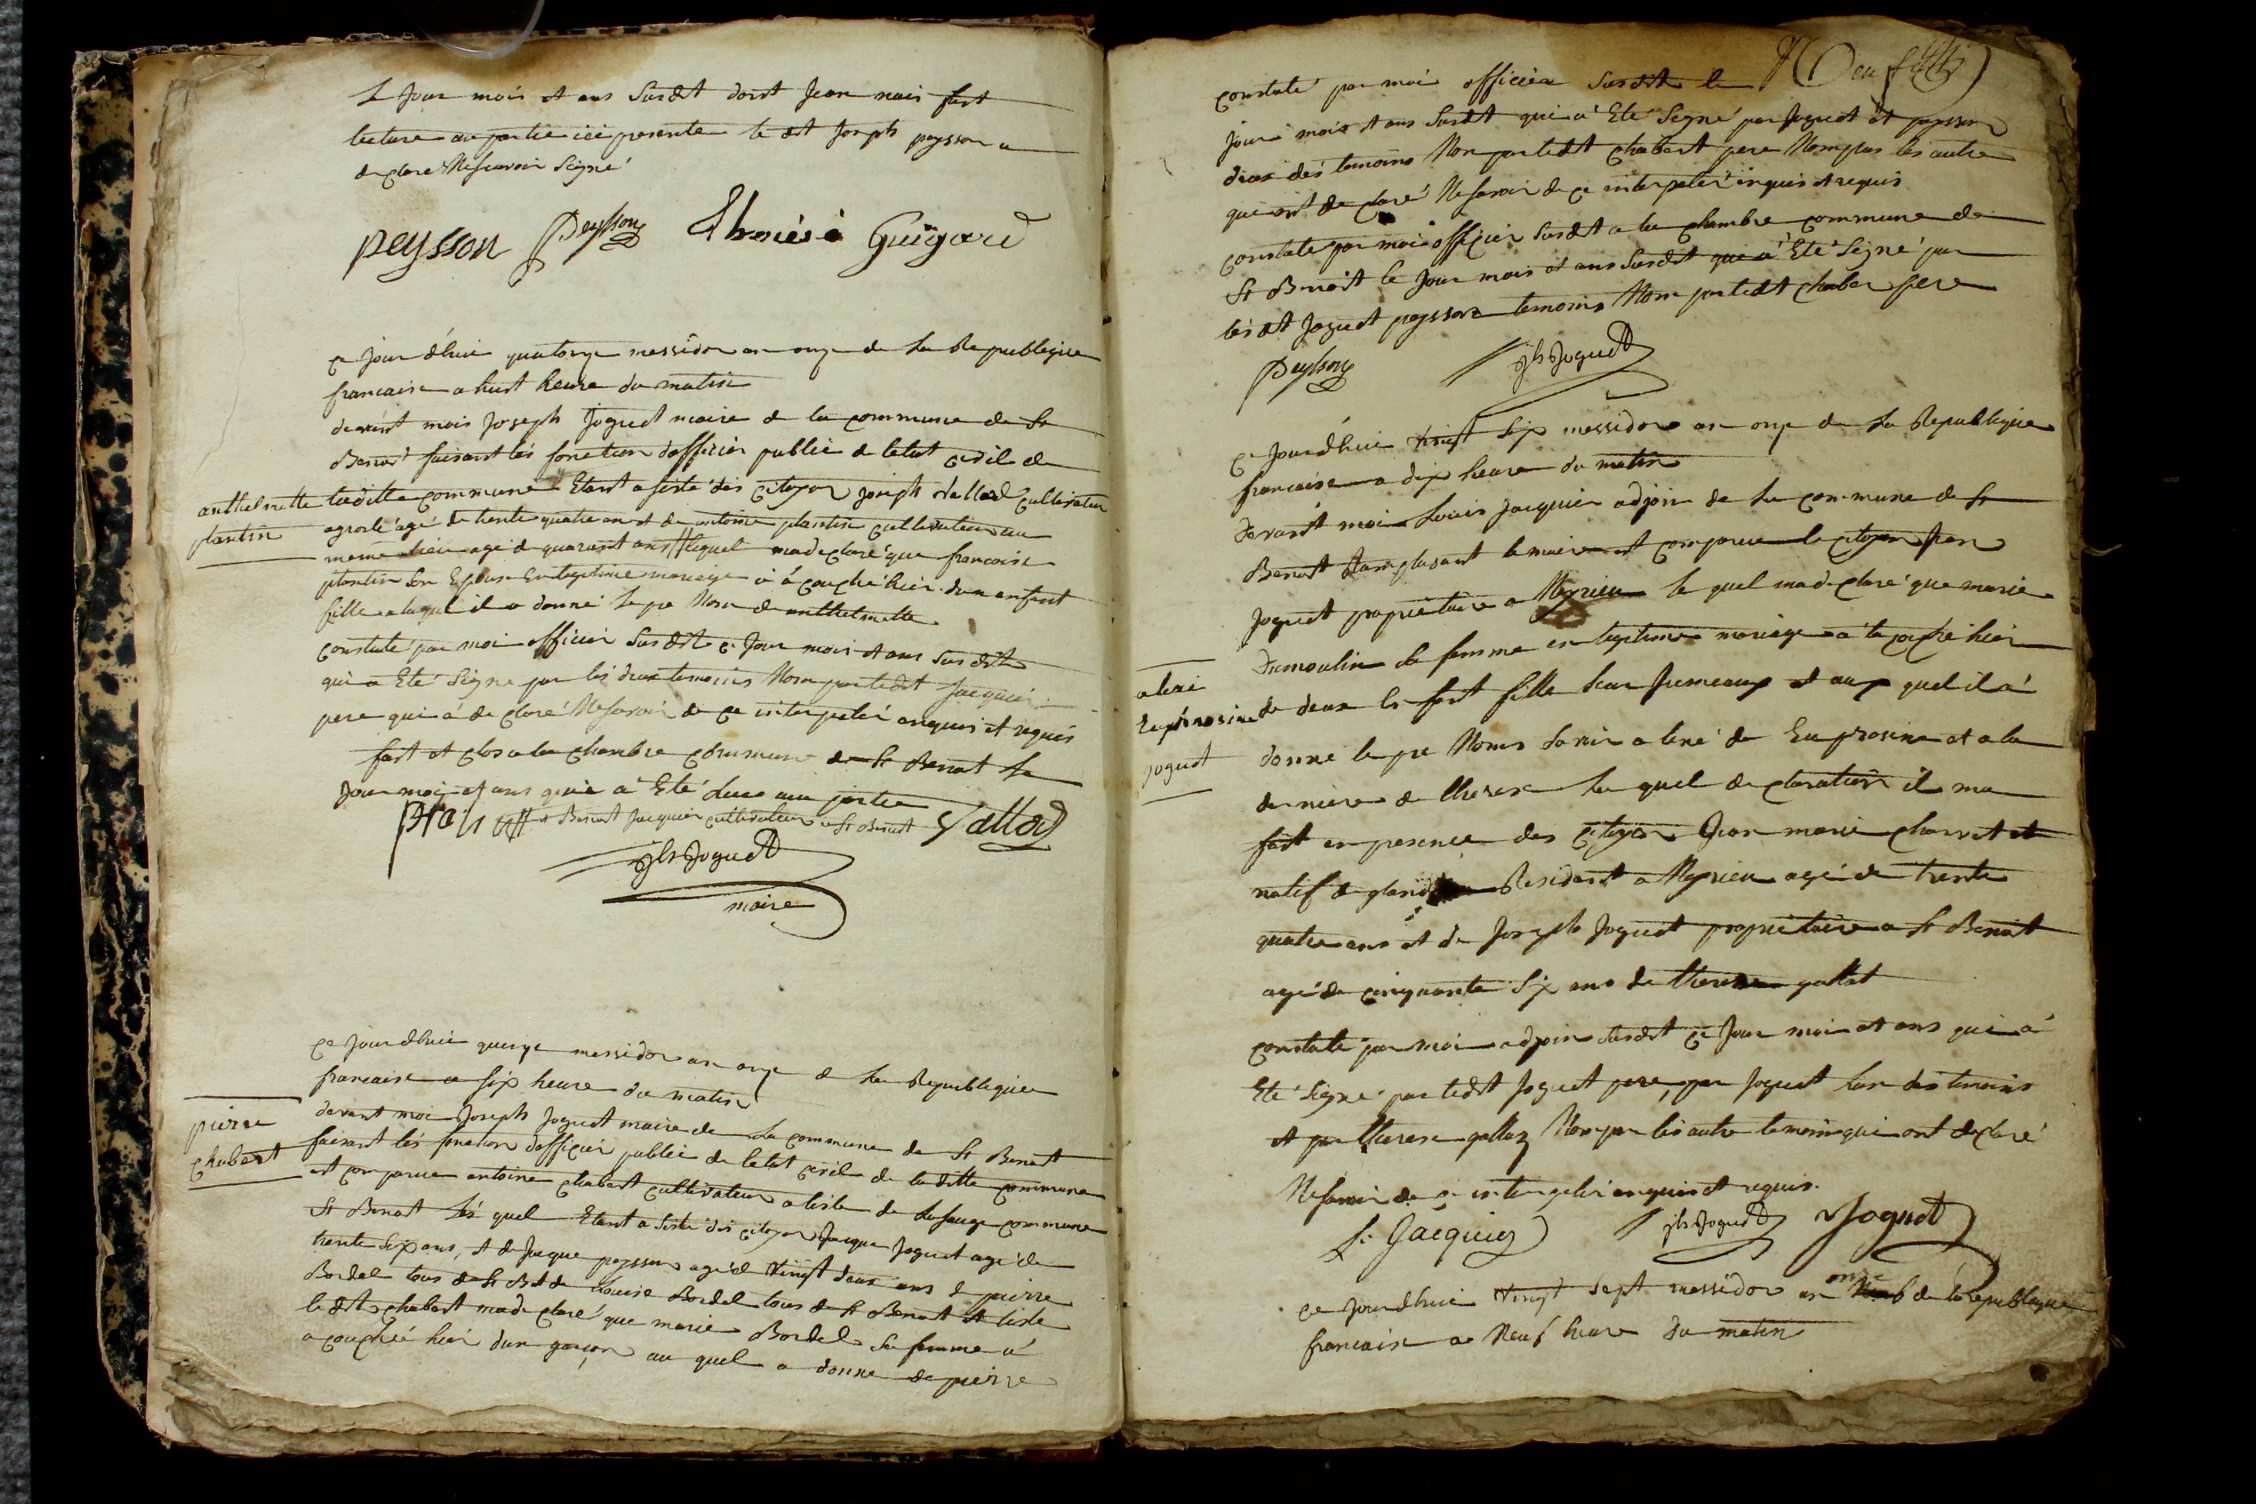 Le Jour mois et ans Susdit dont Jean nais fait
lecture au partie ici presente le dit Joseph peysson a
de clare Nesavoir Signé
peysson Peysson Guigard
ce jour dhui quatorze messidor an onze de La Republeque
francaise a huit heure du matin
devant mois Joseph Joguet maire de la commune de St
Benoit faisant lés fonction dofficier public de letat civil de
anthelmette
plantin
laditte commune Etant a sisté dés citoyen Joseph vallod Cultivateur
agé de trente quatre an et de antoine plantin cultivateur au
meme lieu agé de quarant ans lequel ma declaré que francoise
plantin Son Epouse En legitime mariage à acouché hier dun enfent
fille alaquel il a donné le pre Nom de anthelmette
constaté par moi officier Susdit ce Jour mois et ans Susdit
qui a Eté Signe par lés deux temoins Nom par ledit Jacquier
pere qui à de claré Nesavoir de ce interpelé enquis et requis
fait et clos a la Chambre commune de St Benoit le
Jour mois et ans qui à Eté Lue au partie
Benoit Jacquier cultivateur a St Benoit Vallod
jh Joguet
maire
ce Jour dhui quinze messidor an onze de La Republeque
francaise a six heure du matin
pierre
chabert
devant moi Joseph Joguet maire de La commune de St Benoit
faisant lés fonction dofficier public de letat civil de la ditte commune
est comparue antoine chabert cultivateur a lisle de Lasauge commune
St Benoit Lé quel Etant a Sisté dés citoyen Jacque Joguet agé de
trente Six ans, et de Jacque peysson agé de vingt deux ans de pierre
Bordel tous de St Bt de Louise Bordel tous de St Benoit et liste
le dit chabert ma de claré que marie Bordel Sa femme à
a couchée hier dun garçon au quel a donne de pierre
constaté par moi officier Susdit le
Jour mois et ans Susdit qui à Eté Signé par Joguet et peysson
deux dés temoins Non par ledit chabert pere Nompas lés autre
qui ont de claré Nesavoir de ce interpelé enquis et requis
constaté par moi officier Susdit a la chambre commune de
St Benoit le Jour mois et ans Susdit qui à Eté Signé par
lés dit Joguet peysson temoins Nom par ledit chaber pere
Peysson jh Joguet
ce Jourdhui vingt Six messidor an onze de La Republeque
francaise a dix heure du matin
Devant moi Louis Jacquier adjoin de La commune de St
Benoit Ramplasant le maire est comparue le citoyen Jean
Joguet propriétaire a Meyrieu le quel ma de claré que marie
Dumoulin Sa femme en legitime mariage a a couché hier
alexi
Euphrosine
Joguet
de deux En fant fille Leur Jumeaux et aux quel il à
donne le pre Noms Savoir a lené de Euprosine et a la
derniere de therese La quel de claration il ma
fait en presence des citoyen Jean marie charvet et
natif de gland Resident a Meyrieu agé de trente
quatre ans et de Joseph Joguet proprietaire a St Benoit
agé de cinquante Six ans de therese gallat
constaté par moi adjoin Susdit ce Jour moi et ans qui à
Eté Signé par ledit Joguet pere, par Joguet Lun des temoins
et par therese gallay Nom par lés autre temoin qui ont declaré
Nesavoir de ce interpelé enquis et requis.
L. Jacquier jh Joguet Joguet
ce Jourdhui vingt Sept messidor an onze de la republeque
francaise a Neuf heure du matin